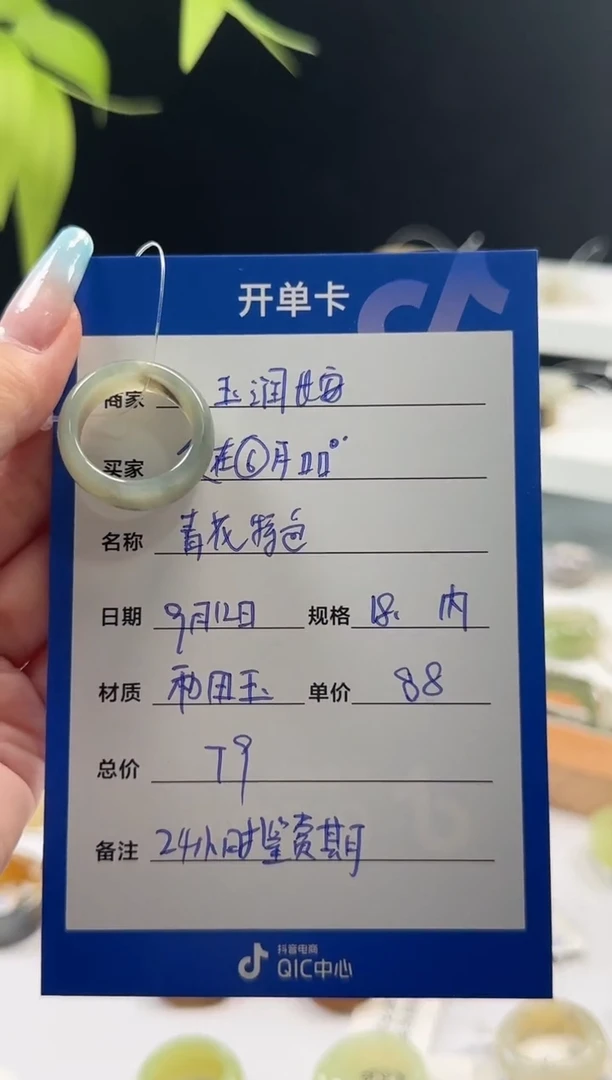 开单卡
商家 玉润
买家 6月
名称 青花特色
日期 9月12日 规格 18. 内
材质 和田玉 单价 88
总价 T9
备注 24小时鉴赏期
抖音电商
QIC中心